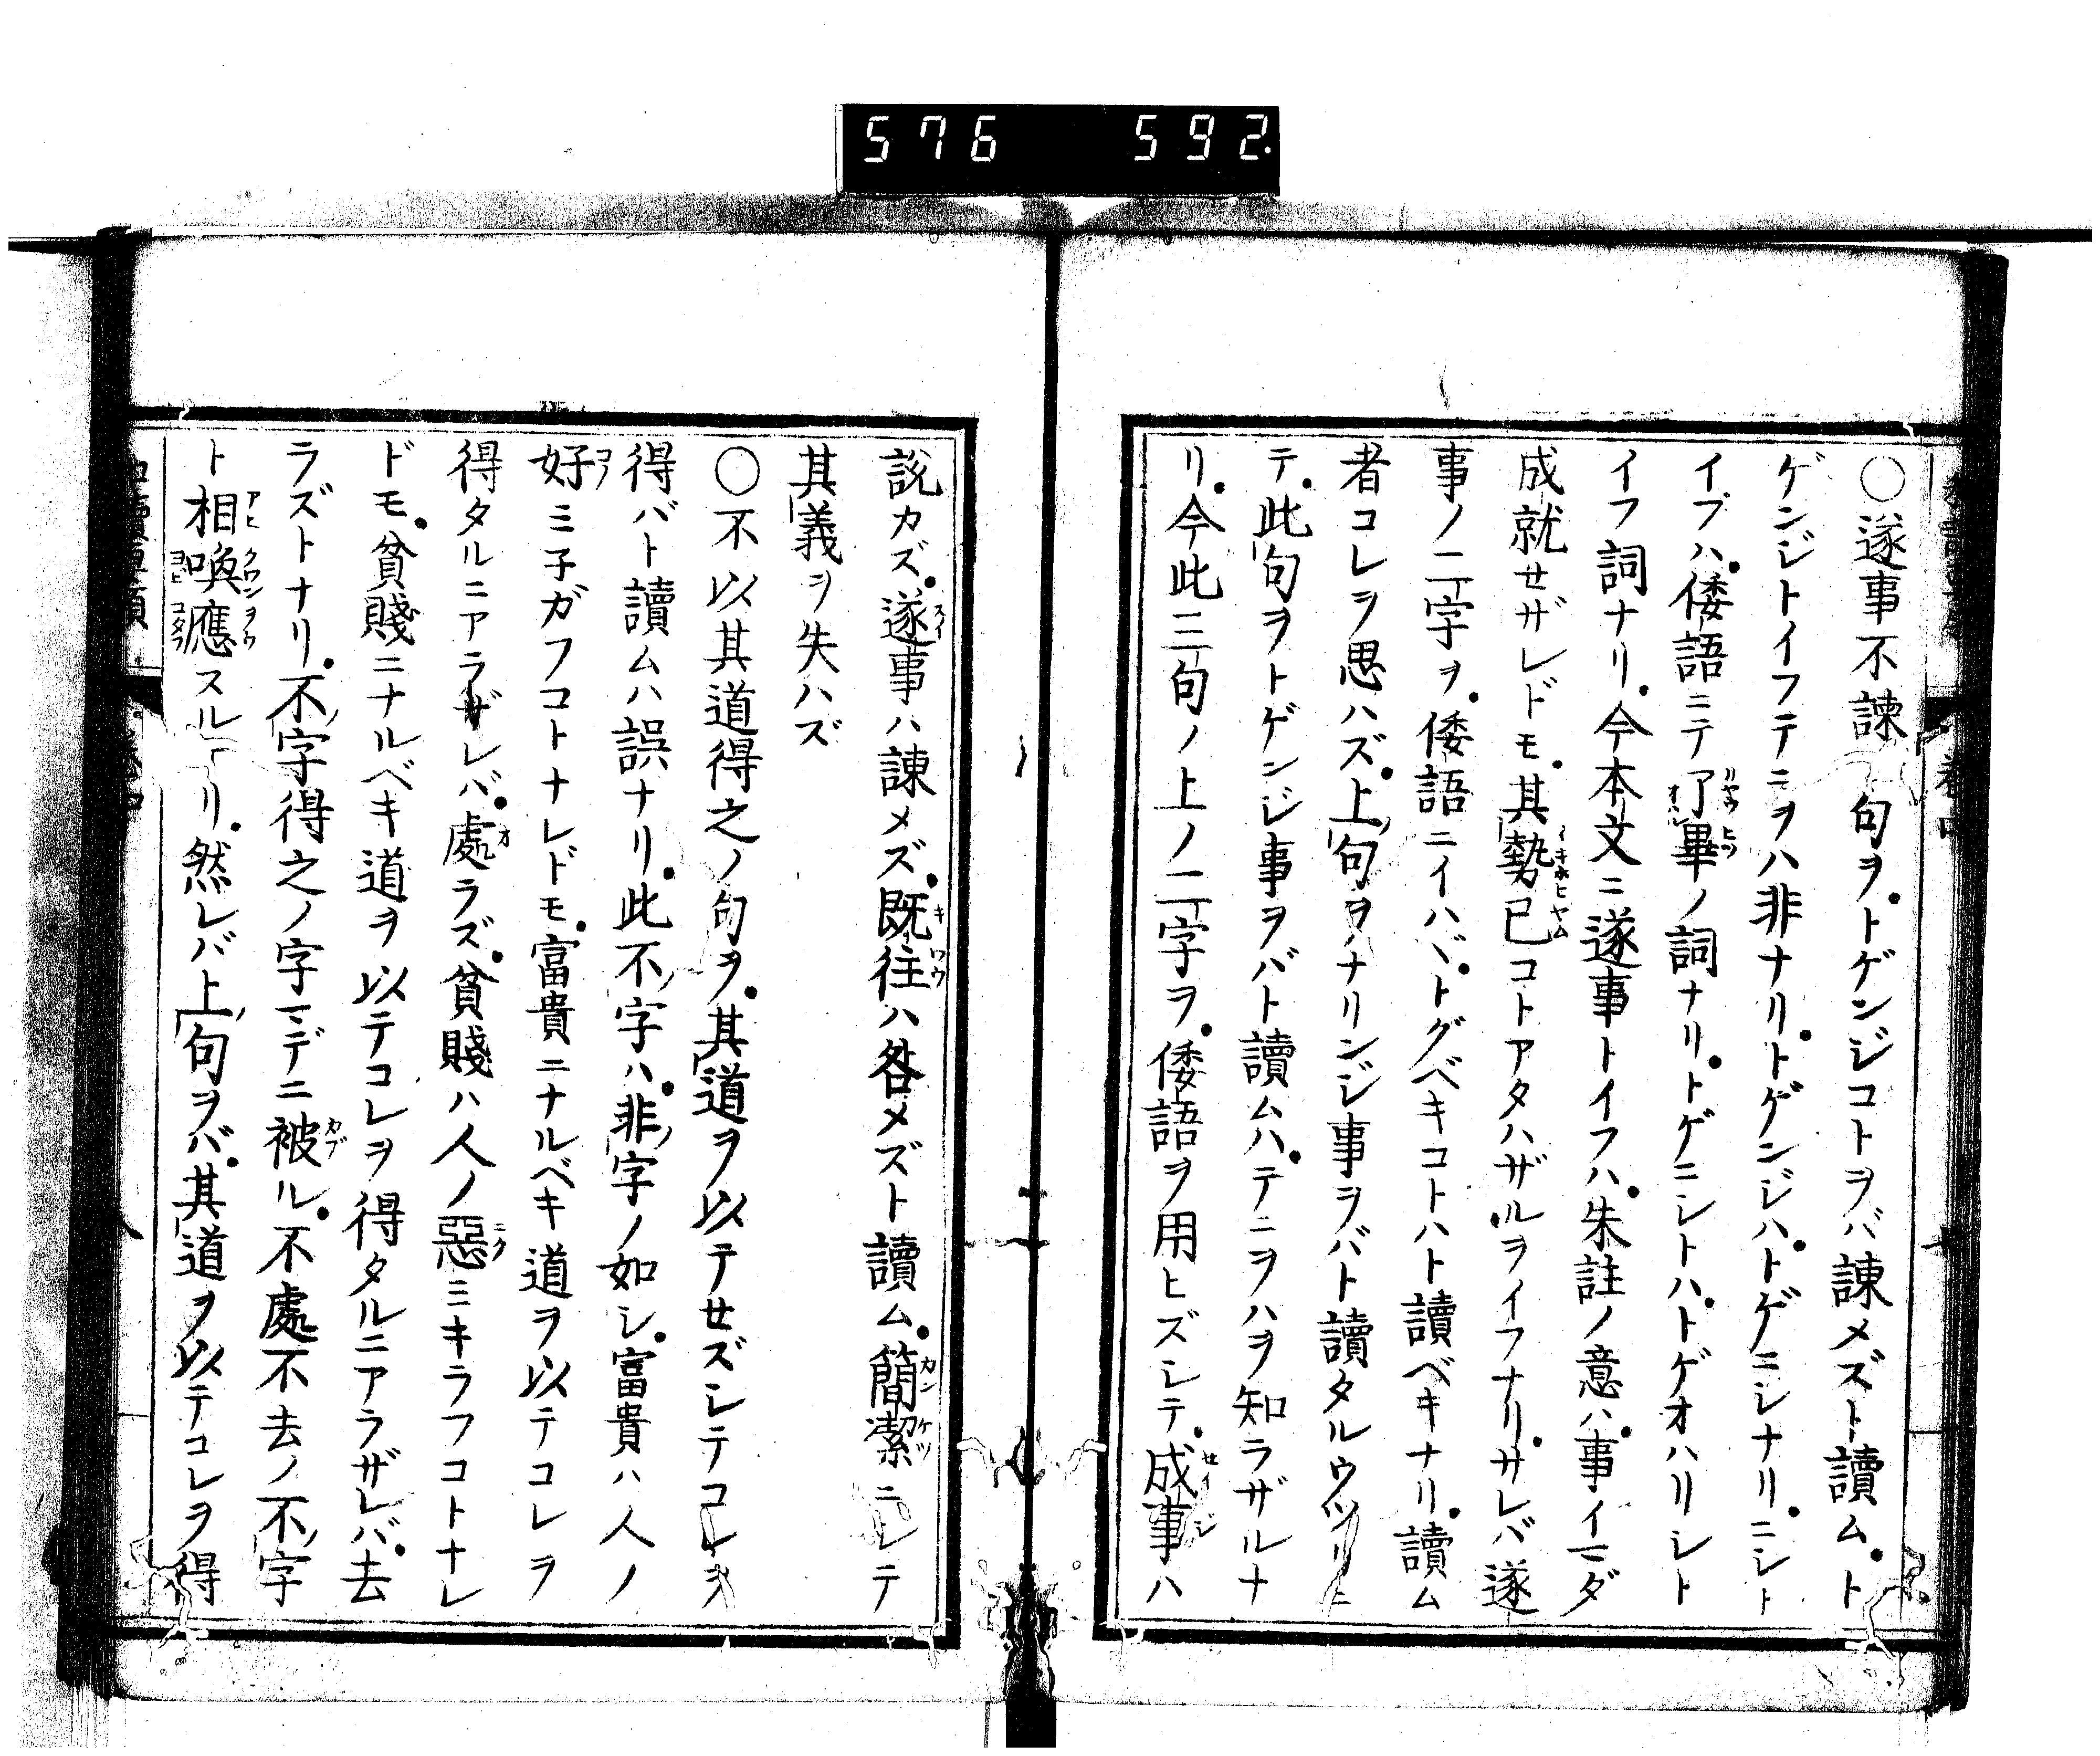 576 592.
〇遂事不諫 句ヲ.トゲンジコトヲバ諫メズト讀ム.ト
ゲンジトイフテニヲハ非ナリ.トゲンジハ.トゲニシナリ.ニシト
イフハ.倭語ニテ了畢ノ詞ナリ.トゲニシトハ.トゲオハリシト
イフ詞ナリ.今本文ニ遂事トイフハ.朱註ノ意ハ.事イマダ
成就セザレドモ.其勢已コトアタハザルヲイフナリ.サレバ遂
事ノ二字ヲ.倭語ニイハヾ.トグベキコトハト讀ベキナリ.讀ム
者コレヲ思ハズ.上ノ句ヲナリンジ事ヲバト讀タルウツリニ
テ.此句ヲトゲンジ事ヲバト讀ムハ.テニヲハヲ知ラザルナ
リ.今此三句ノ上ノ二字ヲ.倭語ヲ用ヒズシテ.成事ハ
説カズ.遂事ハ諫メズ.既往ハ咎メズト讀ム.簡潔ニシテ
其義ヲ失ハズ
〇不以其道得之ノ句ヲ.其道ヲ以テセズシテコレヲ
得バト讀ムハ誤ナリ.此不ノ字ハ.非ノ字ノ如シ.富貴ハ人ノ
好ミ子ガフコトナレドモ.富貴ニナルベキ道ヲ以テコレヲ
得タルニアラザレバ.處ラズ.貧賤ハ人ノ惡ミキラフコトナレ
ドモ.貧賤ニナルベキ道ヲ以テコレヲ得タルニアラザレバ.去
ラズトナリ.不ノ字得之ノ字マデニ被ル.不處不去ノ不ノ字
ト相喚應スルナリ.然レバ上ノ句ヲバ.其道ヲ以テコレヲ得